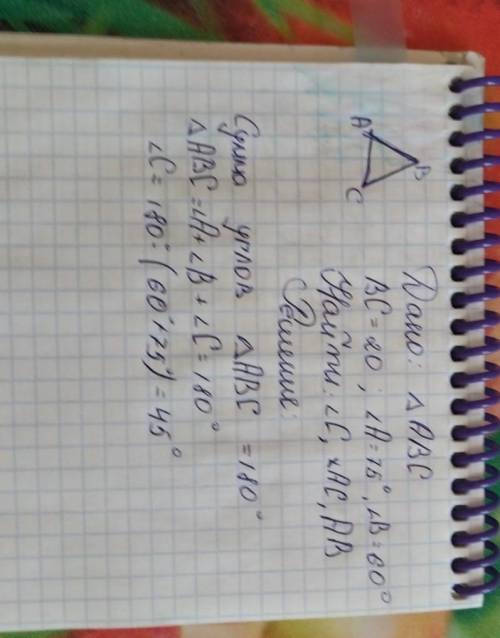 Дано: △ABC
BC = 20; ∠A = 75°, ∠B = 60°
Найти: ∠C, AC, AB
Решение:
Сумма углов △ABC = 180°
△ABC = ∠A + ∠B + ∠C = 180°
∠C = 180° - (60° + 75°) = 45°
A
B
C